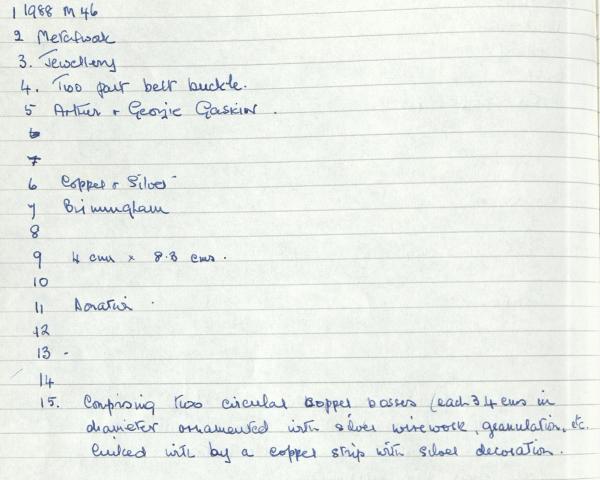 1 1988 M 46
2 Metalwork
3. Jewellery
4. Two part belt buckle.
5 Arthur + Georgie Gaskin.
6
7
6 Copper & Silver
7 Birmingham
8
9 4 cms x 8.3 cms.
10
11 Donation
12
13 -
14
15. Comprising two circular copper bosses (each 3.4 cms in
diameter ornamented with silver wirework, granulation, etc.
linked with by a copper strip with silver decoration.